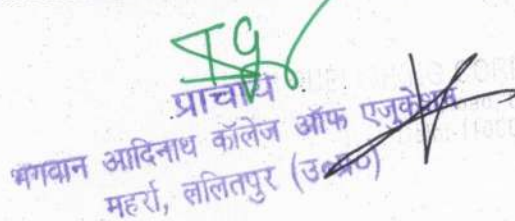 प्राचार्य
भगवान आदिनाथ कॉलेज ऑफ एजूकेशन
महर्रा, ललितपुर (उ०प्र०)